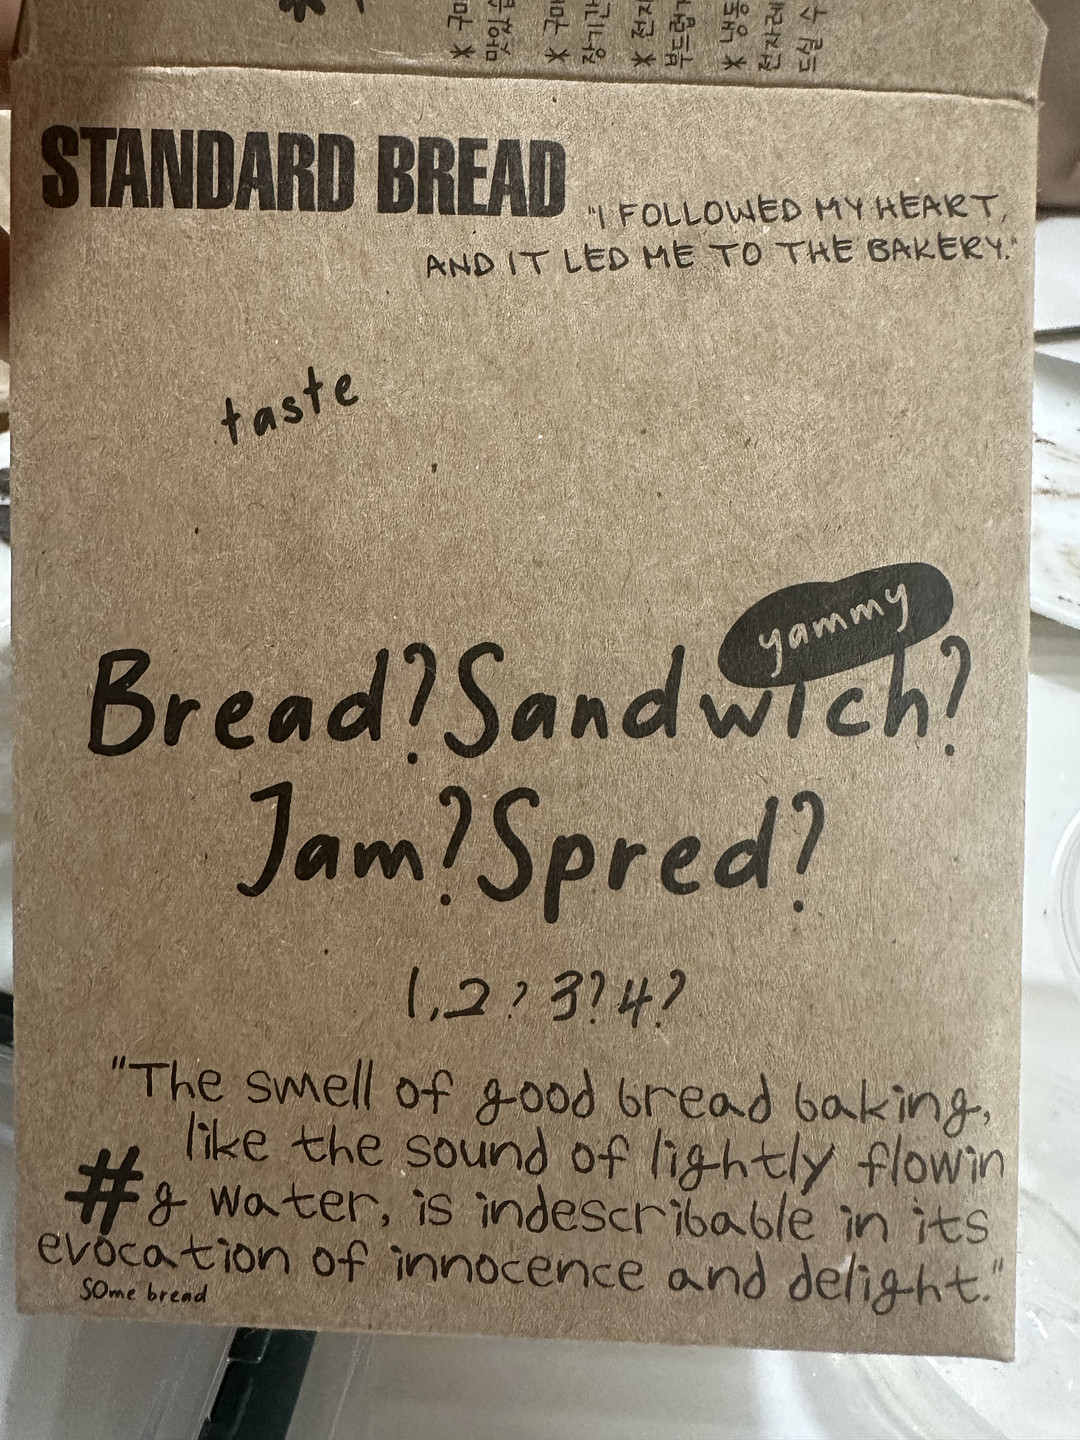 STANDARD BREAD
"I FOLLOWED MY HEART,
AND IT LED ME TO THE BAKERY."
taste
yammy
Bread?Sandwich?
Jam?Spred?
1,2?3?4?
"The smell of good bread baking,
like the sound of lightly flowin
#g water, is indescribable in its
evocation of innocence and delight."
some bread